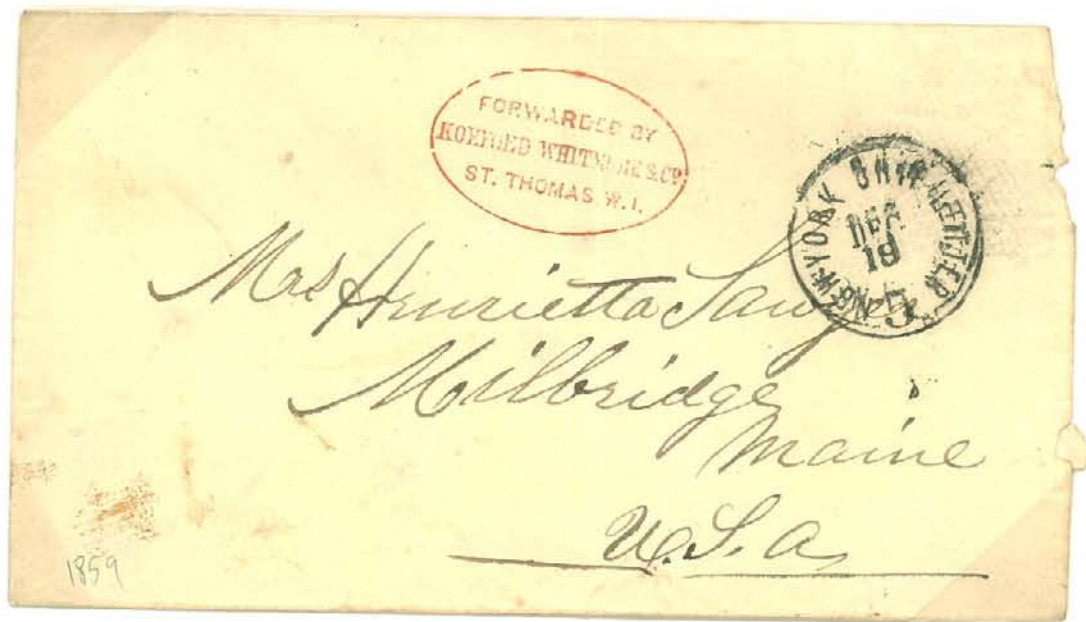 FORWARDED BY
WHITMORE & CO.
ST. THOMAS W.I.
NEW-YORK SHIP LETTER
DEC
18
5
Mrs Henrietta Sawyer
Milbridge
Maine
U.S.A.
1859